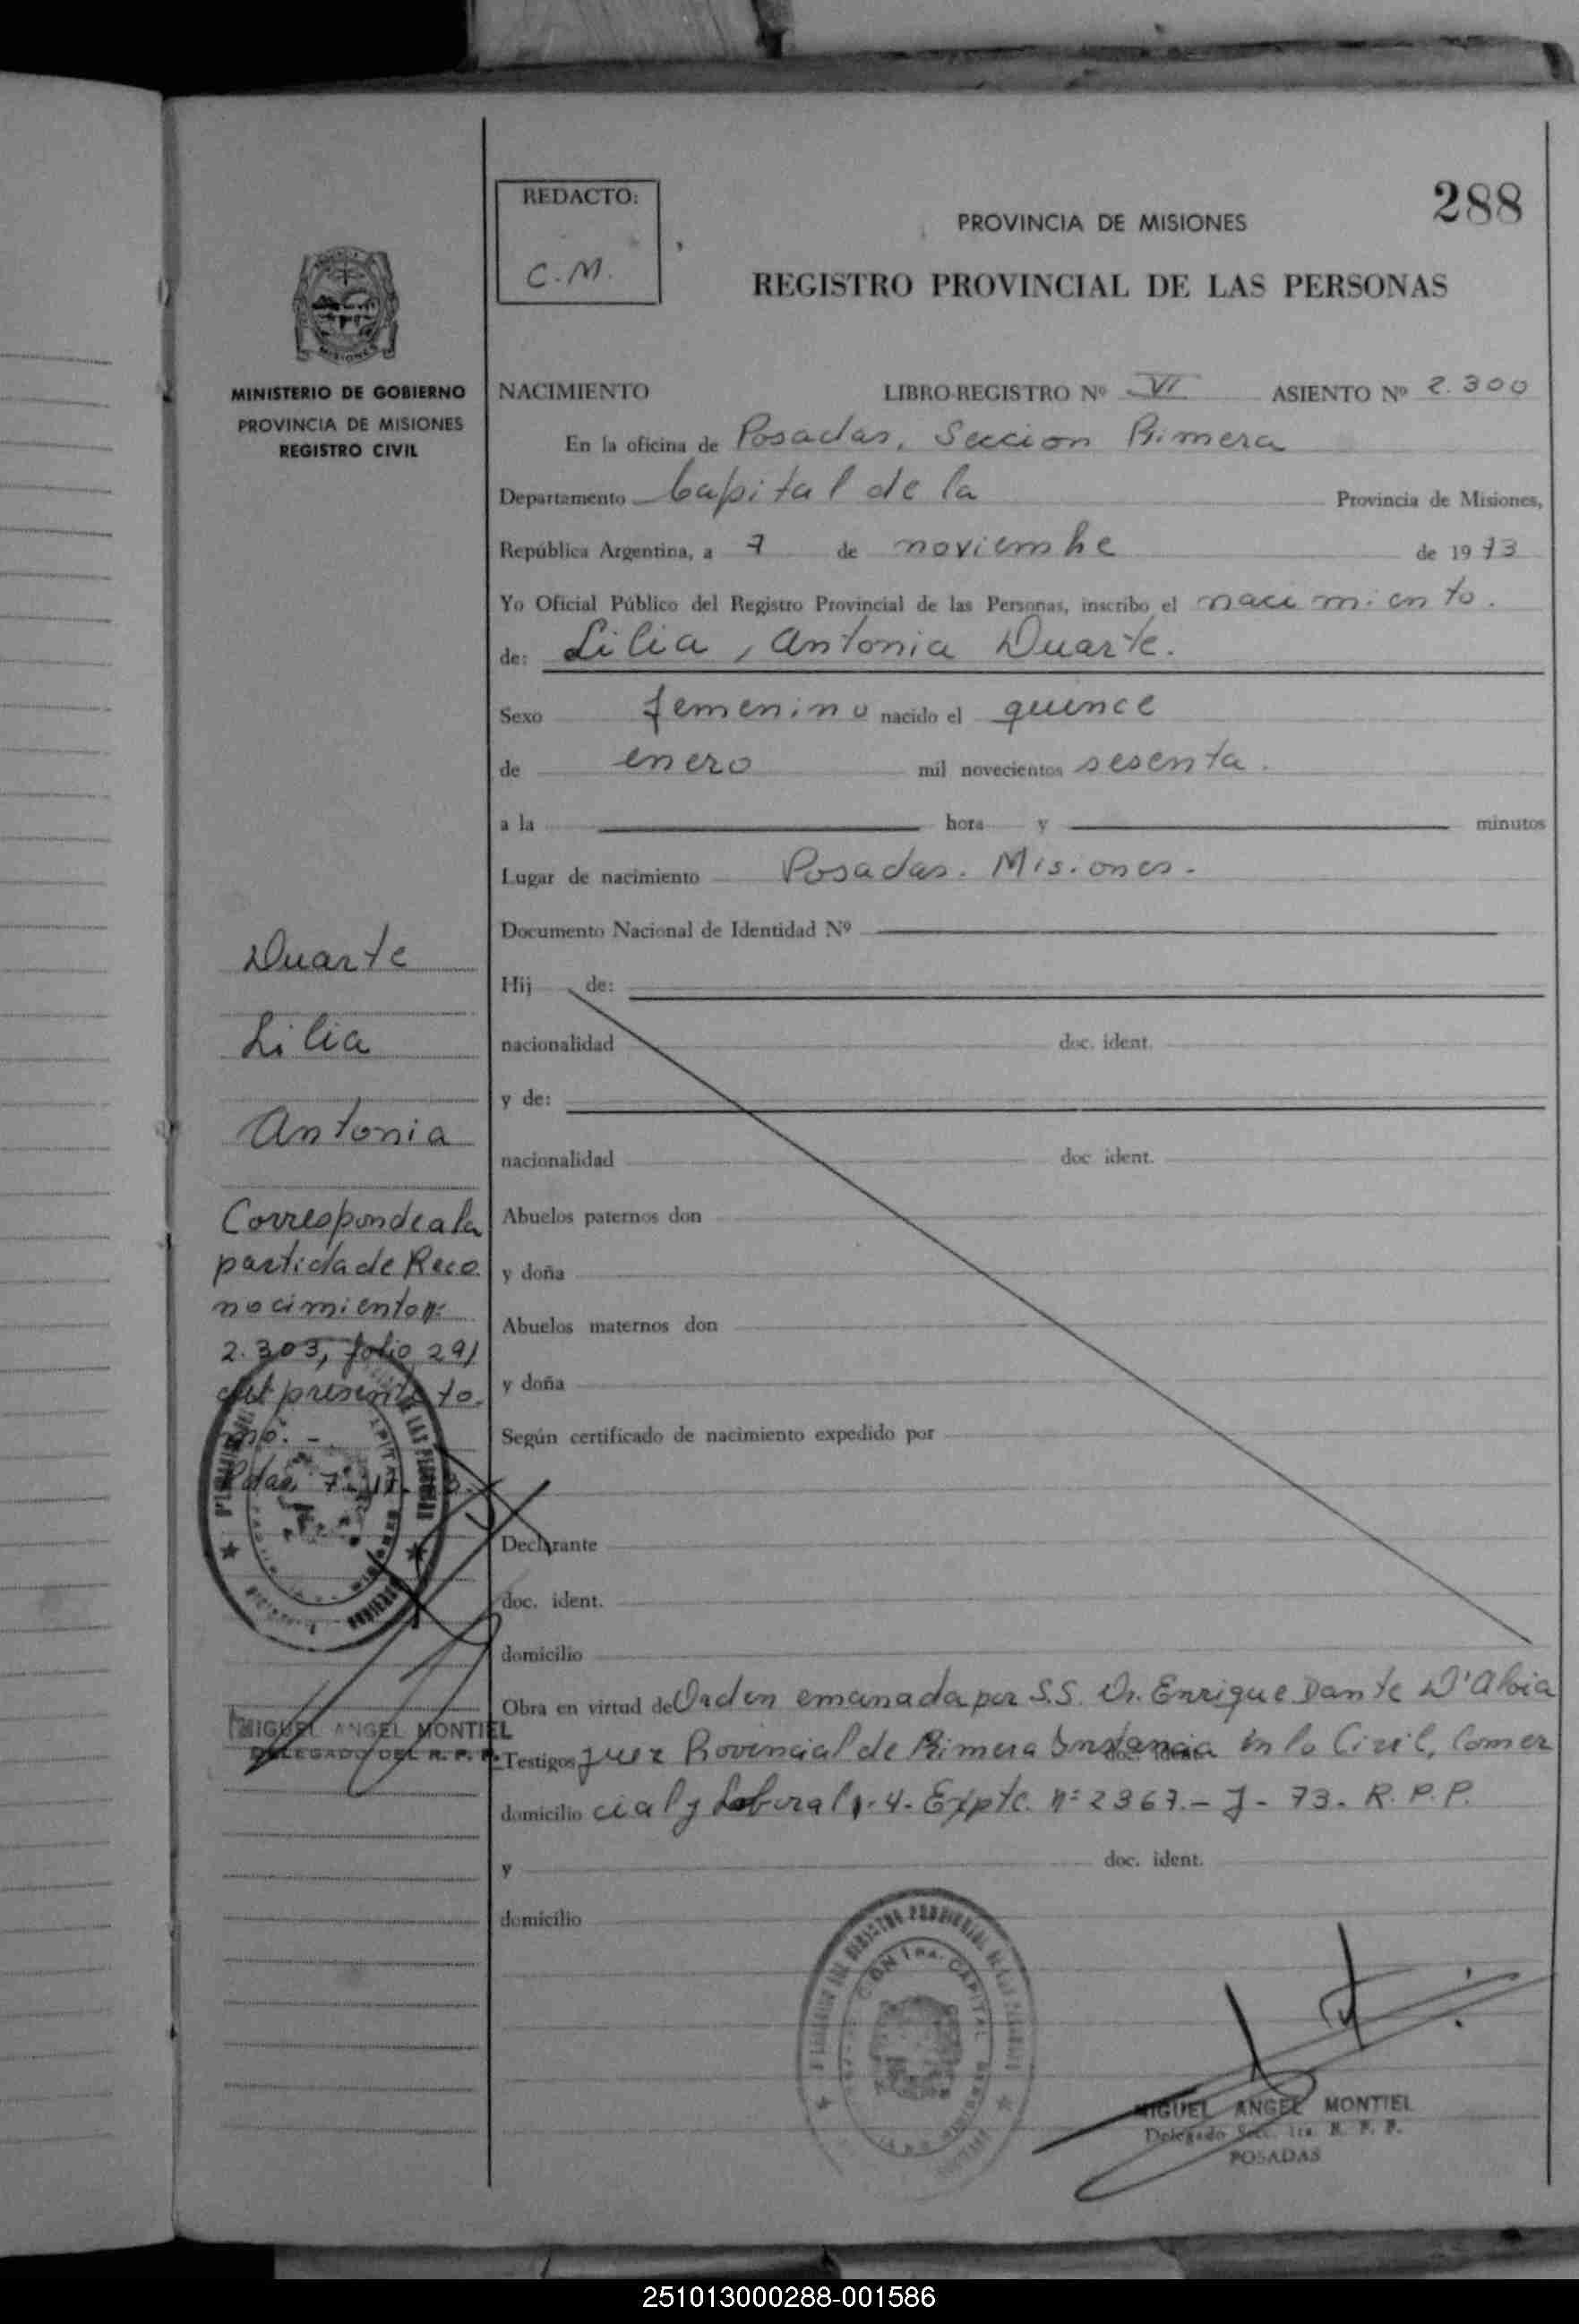 REDACTO:
C.M.
288
PROVINCIA DE MISIONES
REGISTRO PROVINCIAL DE LAS PERSONAS
MISIONES
MINISTERIO DE GOBIERNO
PROVINCIA DE MISIONES
REGISTRO CIVIL
NACIMIENTO LIBRO-REGISTRO Nº VI ASIENTO Nº 2.300
En la oficina de Posadas, Seccion Primera
Departamento Capital de la Provincia de Misiones,
República Argentina, a 7 de noviembre de 1973
Yo Oficial Público del Registro Provincial de las Personas, inscribo el nacimiento.
de: Lilia, Antonia Duarte.
Sexo femenino nacido el quince
de enero mil novecientos sesenta.
a la hora y minutos
Lugar de nacimiento Posadas. Misiones.
Documento Nacional de Identidad Nº
Hij de:
nacionalidad doc. ident.
y de:
nacionalidad doc ident.
Abuelos paternos don
y doña
Abuelos maternos don
y doña
Según certificado de nacimiento expedido por
Declarante
doc. ident.
domicilio
Obra en virtud de Orden emanada por S.S. Dr. Enrique Dante D'Aloia
Testigos Juez Provincial de Primera Instancia en lo Civil, Comer
domicilio cial y Laboral 4. Expte. nº 2367.- J - 73. R.P.P.
y doc. ident.
domicilio
Duarte
Lilia
Antonia
Corresponde a la
partida de Reco
nocimiento nº
2.303, folio 291
del presente to.
mo. -
Pdas, 7
MIGUEL ANGEL MONTIEL
DELEGADO DEL R. P. P.
CAPITAL
MIGUEL ANGEL MONTIEL
Delegado Secc. 1ra. R. P. P.
POSADAS
251013000288-001586